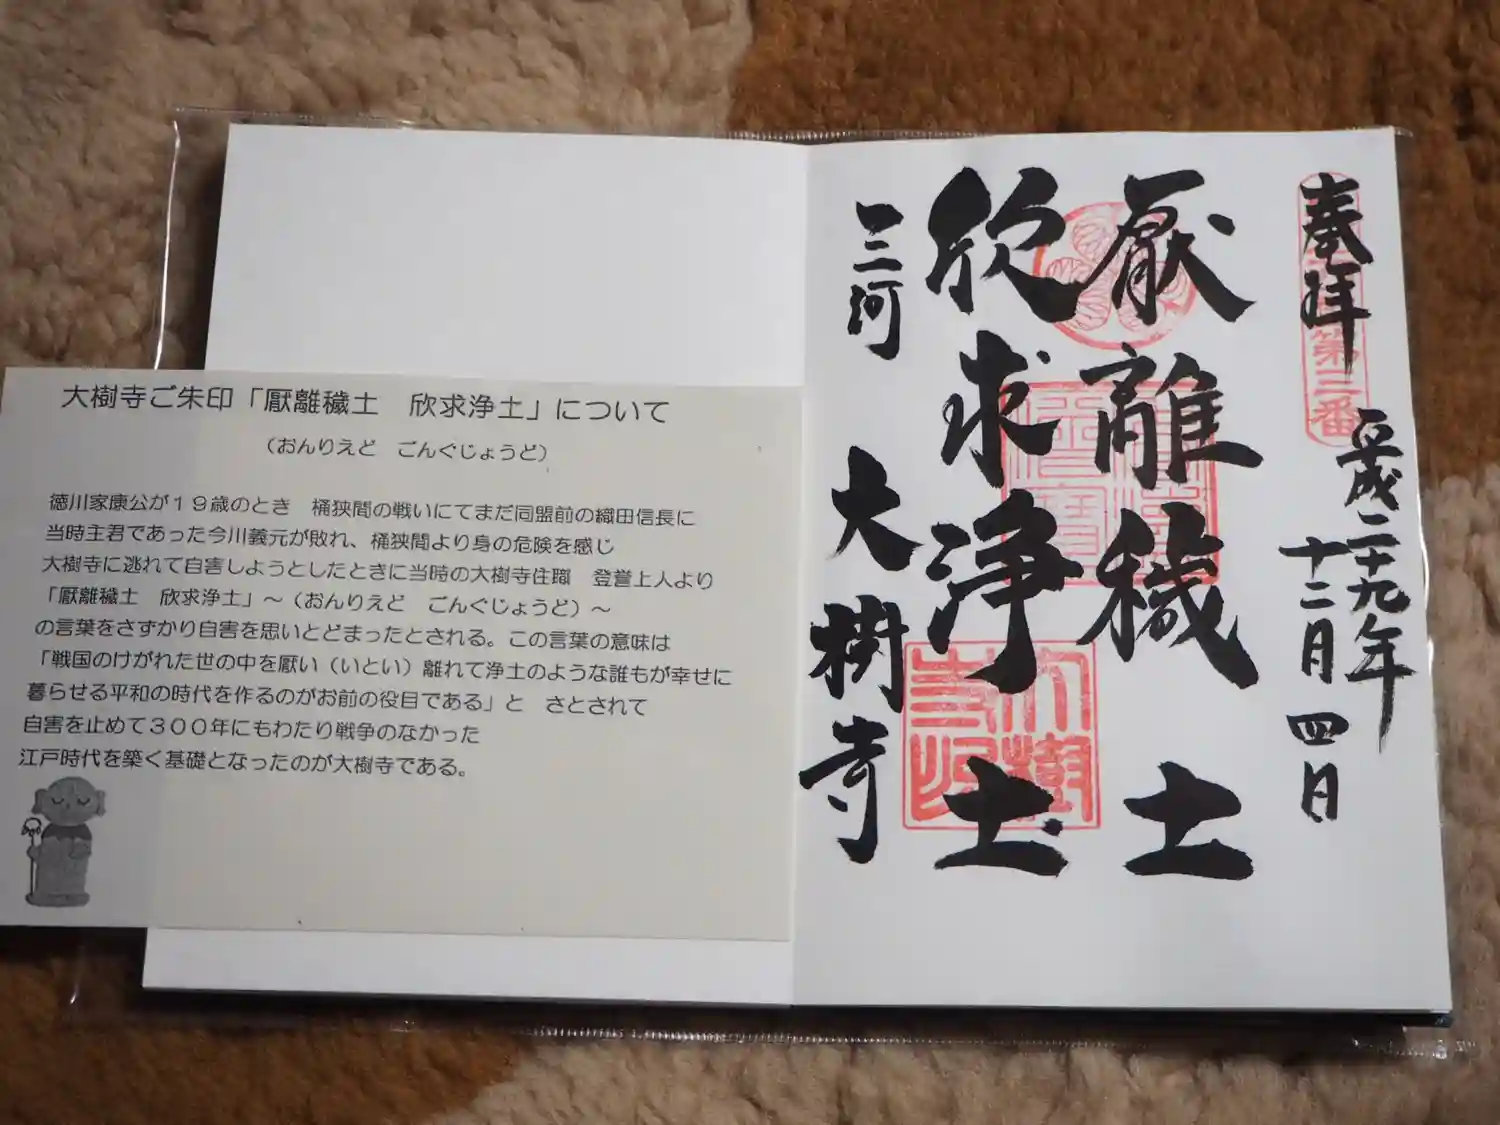 大樹寺ご朱印「厭離穢土　欣求浄土」について
（おんりえど　ごんぐじょうど）
徳川家康公が１９歳のとき　桶狭間の戦いにてまだ同盟前の織田信長に
当時主君であった今川義元が敗れ、桶狭間より身の危険を感じ
大樹寺に逃れて自害しようとしたときに当時の大樹寺住職　登誉上人より
「厭離穢土　欣求浄土」～（おんりえど　ごんぐじょうど）～
の言葉をさずかり自害を思いとどまったとされる。この言葉の意味は
「戦国のけがれた世の中を厭い（いとい）離れて浄土のような誰もが幸せに
暮らせる平和の時代を作るのがお前の役目である」と　さとされて
自害を止めて３００年にもわたり戦争のなかった
江戸時代を築く基礎となったのが大樹寺である。
奉拝
第三番
平成二十九年
十二月四日
厭離穢土
欣求浄土
三河
大樹寺
大樹
寺印